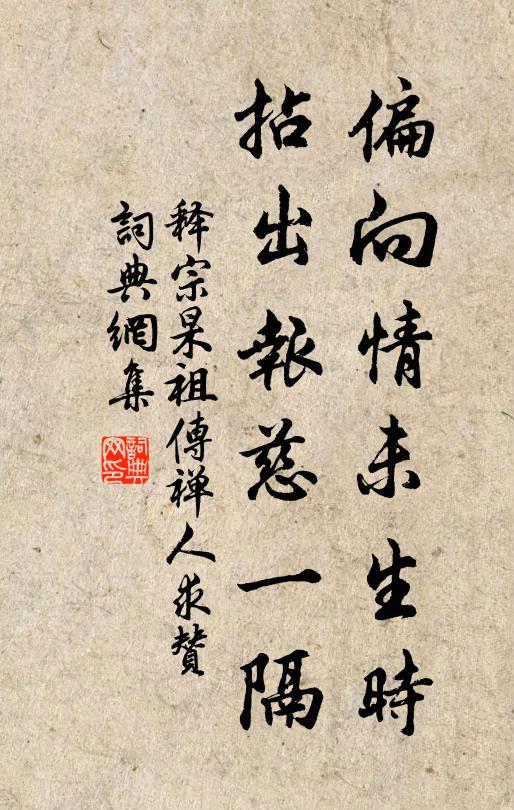 偏向情未生時
拈出報慈一隔
释宗杲祖傳禅人求贊
詞典網集
詞典網印